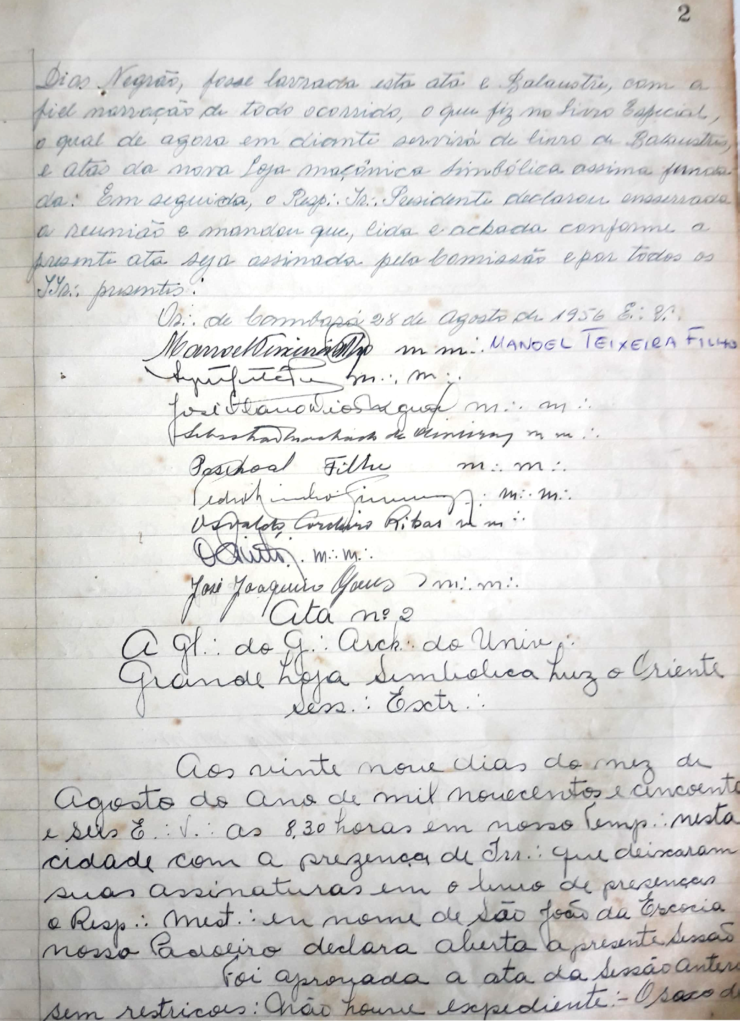 2
Dias Negrão, fosse lavrada esta ata e Balaustre, com a
fiel narração de todo ocorrido, o que fiz no livro Especial,
o qual de agora em diante servirá de livro de Balaustres,
e atas da nova Loja maçônica Simbólica assima funda
da: Em seguida, o Resp∴ Ir∴ Presidente declarou ensserrada
a reunião e mandou que, lida e achada conforme a
presente ata seja assinada pela Comissão e por todos os
IIr∴ presentes∴
Or∴ de Cambará 28 de Agosto de 1956 E∴ V∴
Manoel Teixeira Filho m m∴ MANOEL TEIXEIRA FILHO
m∴ m∴
José m∴ m∴
Sebastião Machado de Oliveira m m∴
Paschoal Filho m∴ m∴
Pedro m∴ m∴
Osvaldo Cordeiro Ribas m m∴
m∴ m∴
José Joaquim m∴ m∴
Ata nº 2
A Gl∴ do G∴ Arch∴ do Univ∴
Grande Loja Simbolica Luz o Oriente
sess∴ Extr∴
Aos vinte nove dias do mez de
Agosto do ano de mil novecentos e cincoenta
e seis E∴ V∴ as 8,30 horas em nosso Temp∴ nesta
cidade com a prezença de Irr∴ que deixaram
suas assinaturas em o livro de presenças
o Resp∴ Mest∴ en nome de São João da Escocia
nosso Padoeiro declara aberta a presente Sessão
Foi aprovada a ata da Sessão anteri
sem restricoes: Não houve expediente:- O saco de